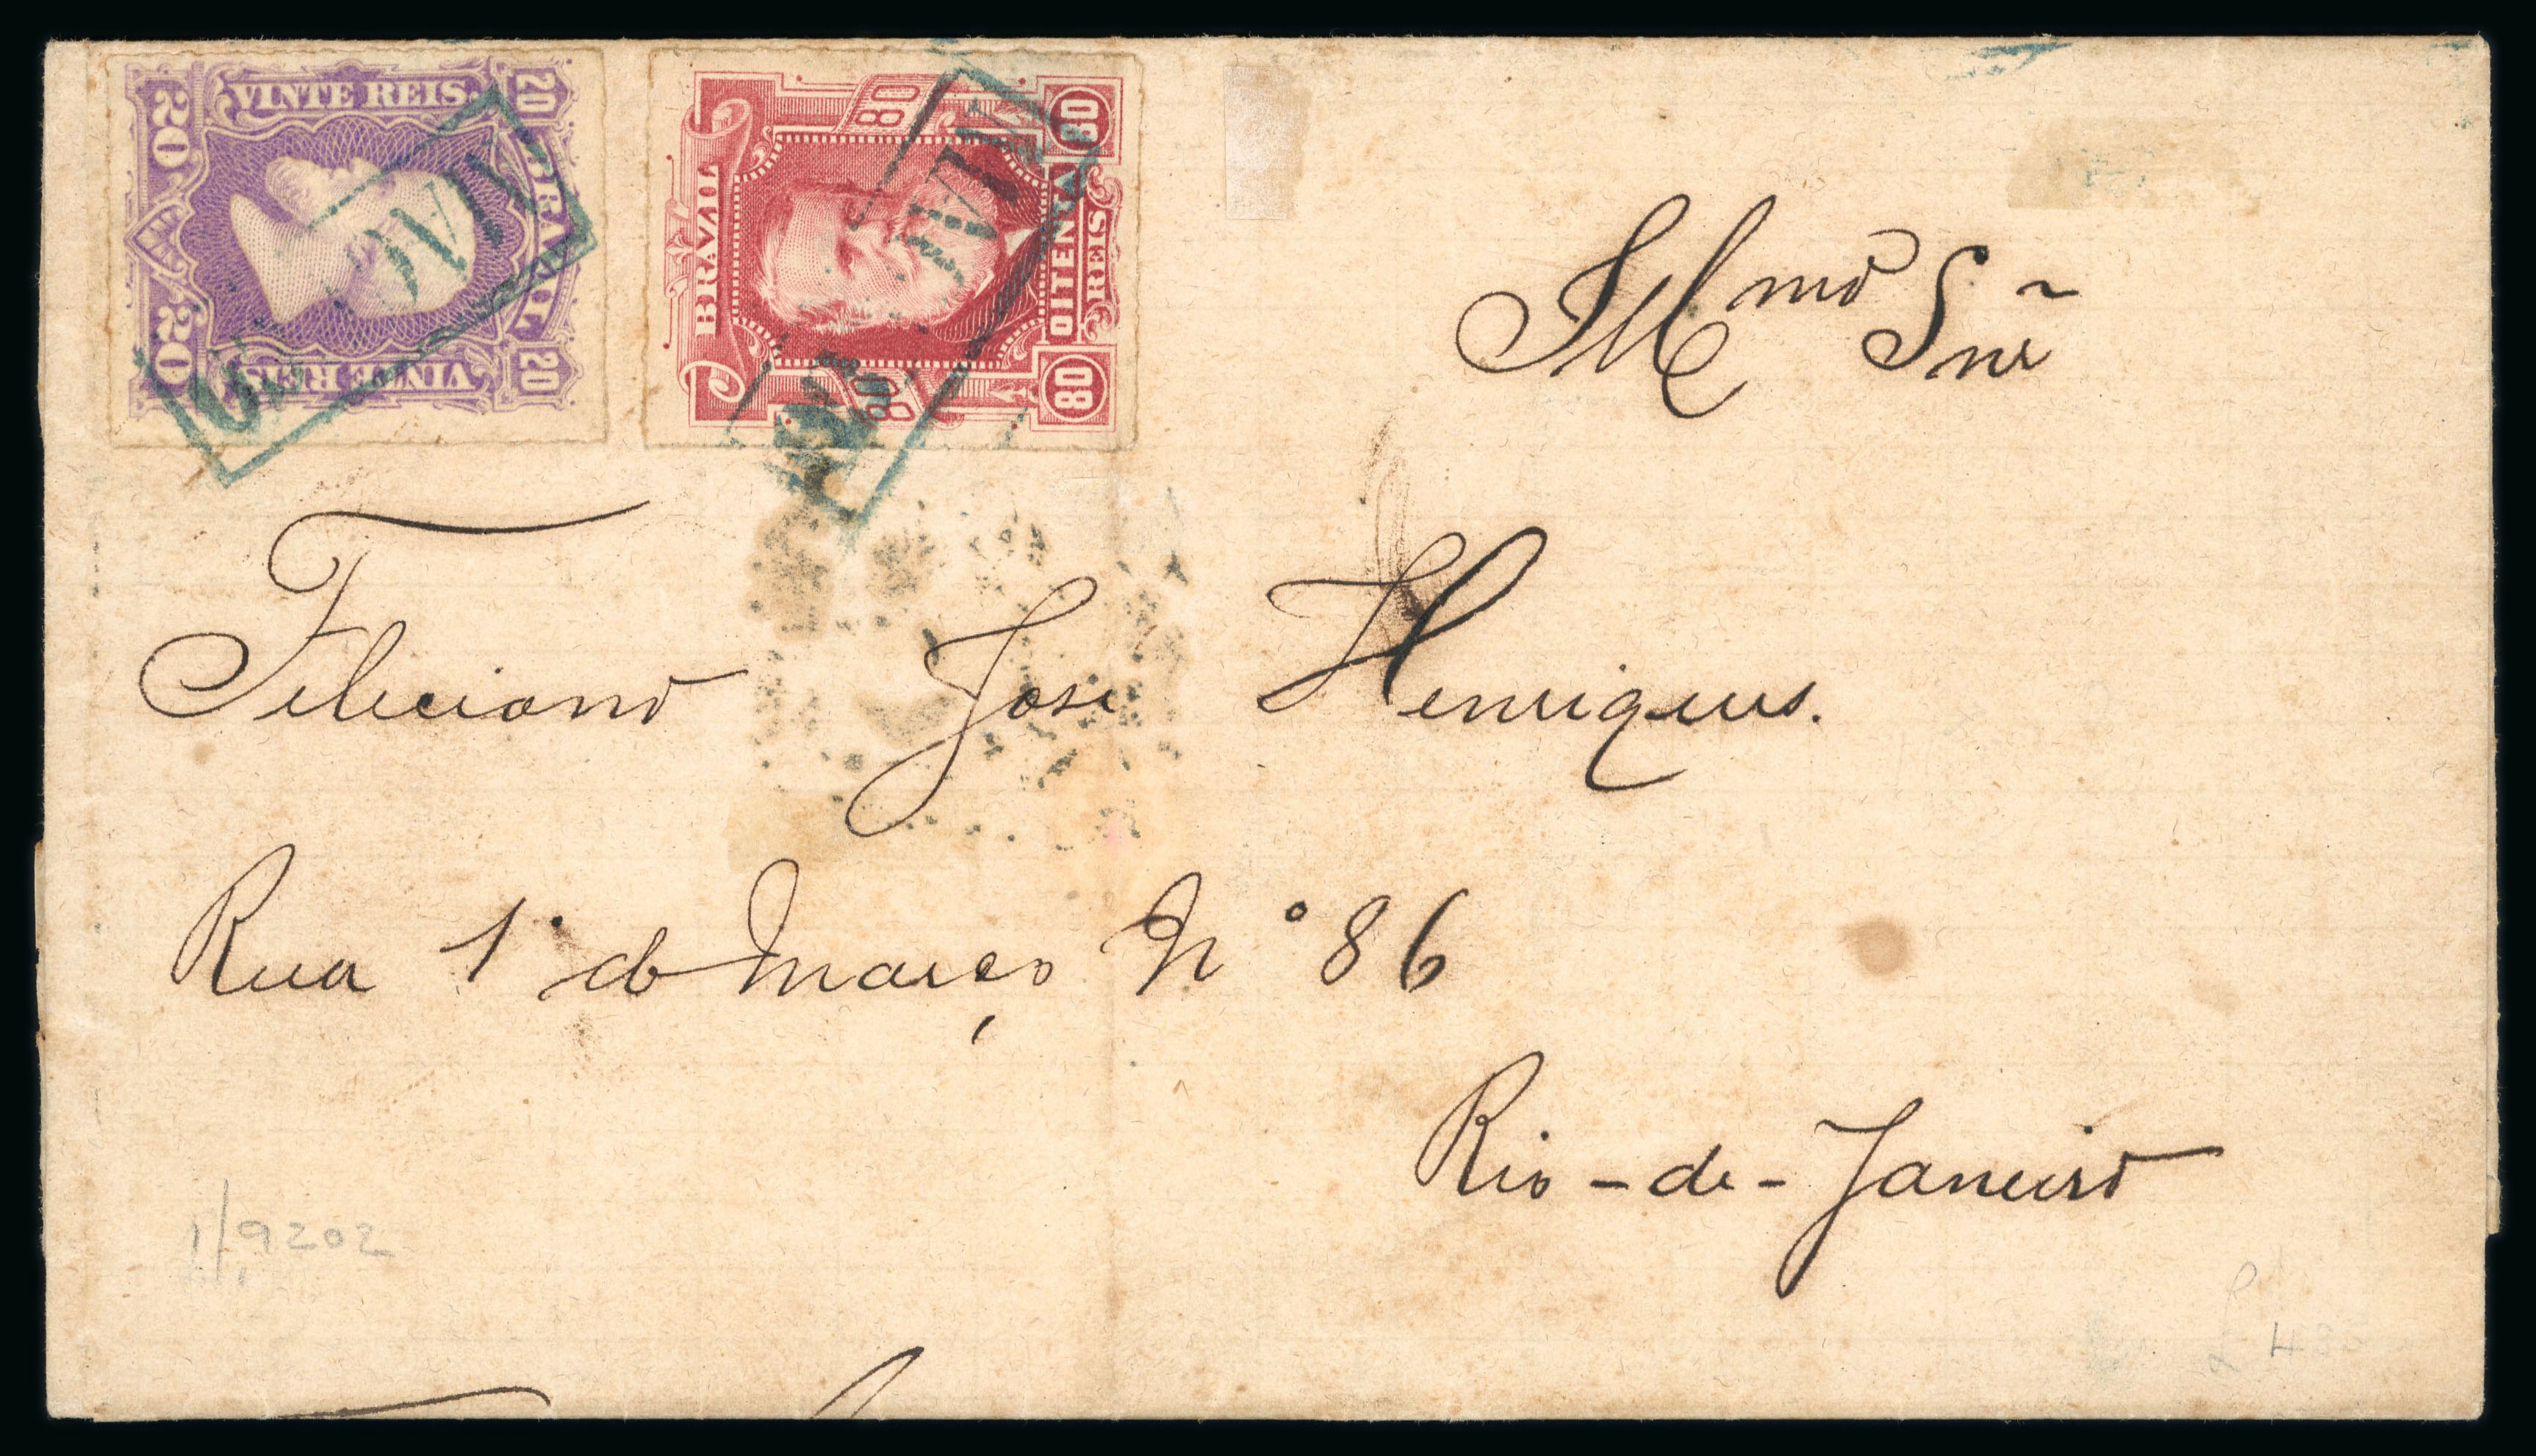 VINTE REIS.
20 20
BRAZIL
20 20
VINTE REIS
80 80
BRAZIL
OITENTA
REIS
80 80
Illmo Snr
Feliciano José Henriques.
Rua 1º de Março Nº 86
Rio-de-Janeiro
1/9202
£ 43